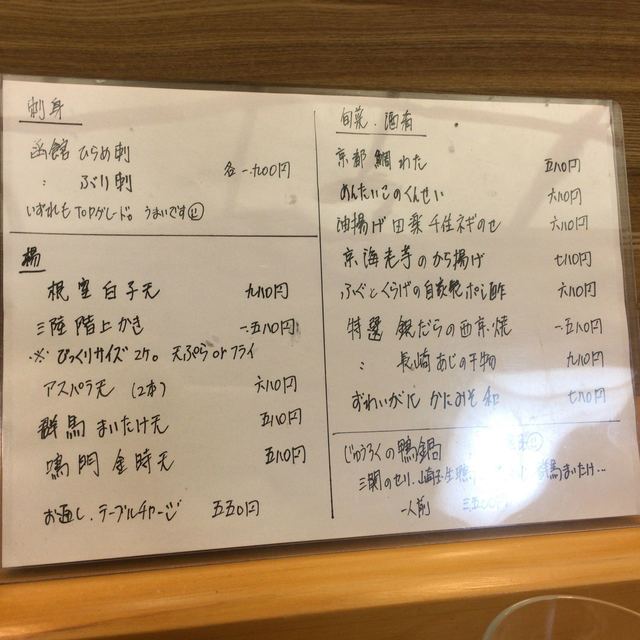 刺身
函館 ひらめ刺
〃 ぶり刺
各一.九00円
いずれもTOPグレード。うまいです
揚
根室 白子天 九八0円
三陸 階上かき 一.五八0円
※ びっくりサイズ 2ケ。天ぷら or フライ
アスパラ天 (2本) 六八0円
群馬 まいたけ天 五八0円
鳴門 金時天 五八0円
お通し、テーブルチャージ 五五0円
旬菜・酒肴
京都 鯛わた 五八0円
めんたいこのくんせい 六八0円
油揚げ 田楽 千住ネギのせ 六八0円
京 海老芋のから揚げ 七八0円
ふぐとくらげの自家製ポン酢 六八0円
特選 銀だらの西京焼 一.五八0円
〃 長崎あじの干物 九八0円
ずわいがに かにみそ和 七八0円
じゅうろくの鴨鍋
三関のせり、 群馬まいたけ…
一人前 三.五00円